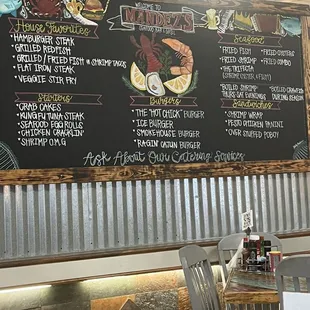 House Favorites
* Hamburger Steak
* Grilled Redfish
* Grilled / Fried Fish & Shrimp Tacos
* Flat Iron Steak
* Veggie Stir Fry
Starters
* Crab Cakes
* Kung Fu Tuna Steak
* Seafood Egg Rolls
* Chicken Cracklin'
* Shrimp O.M.G
Welcome to
Mandez's
Seafood Bar & Grill
Burgers
* The "Hot Chick" Burger
* Ice Burger
* Smokehouse Burger
* Ragin' Cajun Burger
Seafood
* Fried Fish
* Fried Shrimp
* The Trifecta
(Shrimp, Oyster, & Fish)
* Fried Oysters
* Fried Combo
* Boiled Shrimp
Thurs Day Evenings
* Boiled Crawfish
During Season
Sandwiches
* Shrimp Wrap
* Pesto Chicken Panini
* Over Stuffed Poboy
Ask About Our Catering Services